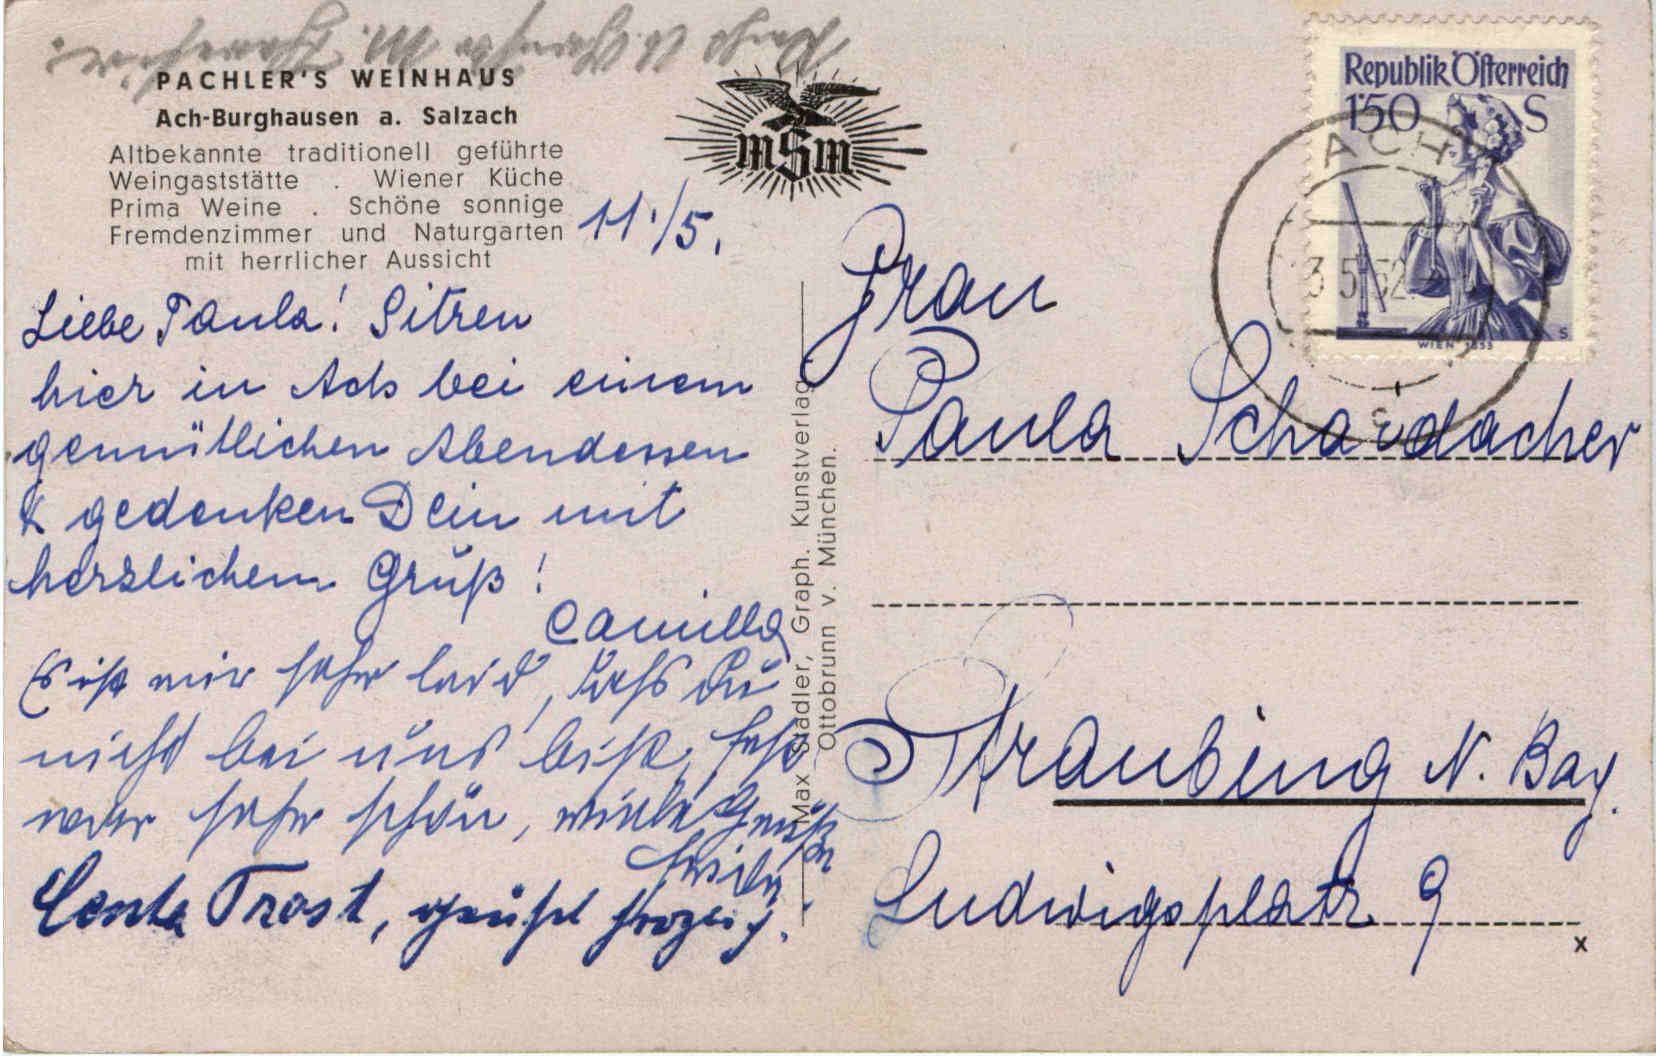 PACHLER'S WEINHAUS
Ach-Burghausen a. Salzach
Altbekannte traditionell geführte
Weingaststätte . Wiener Küche
Prima Weine . Schöne sonnige
Fremdenzimmer und Naturgarten
mit herrlicher Aussicht
mSm
11./5.
Liebe Paula! Sitzen
hier in Ach bei einem
gemütlichen Abendessen
& gedenken Dein mit
herzlichem Gruß!
Camilla
Es ist mir sehr leid, daß Du
nicht bei uns bist,
war sehr schön, viele Grüße
Centa Trost, grüßt herzlich.
Max Stadler, Graph. Kunstverlag
Ottobrunn v. München.
Republik Österreich
1'50 S
WIEN 1853
S
ACH
3.5.52
Frau
Paula Schardacher
Straubing N. Bay.
Ludwigsplatz 9
x